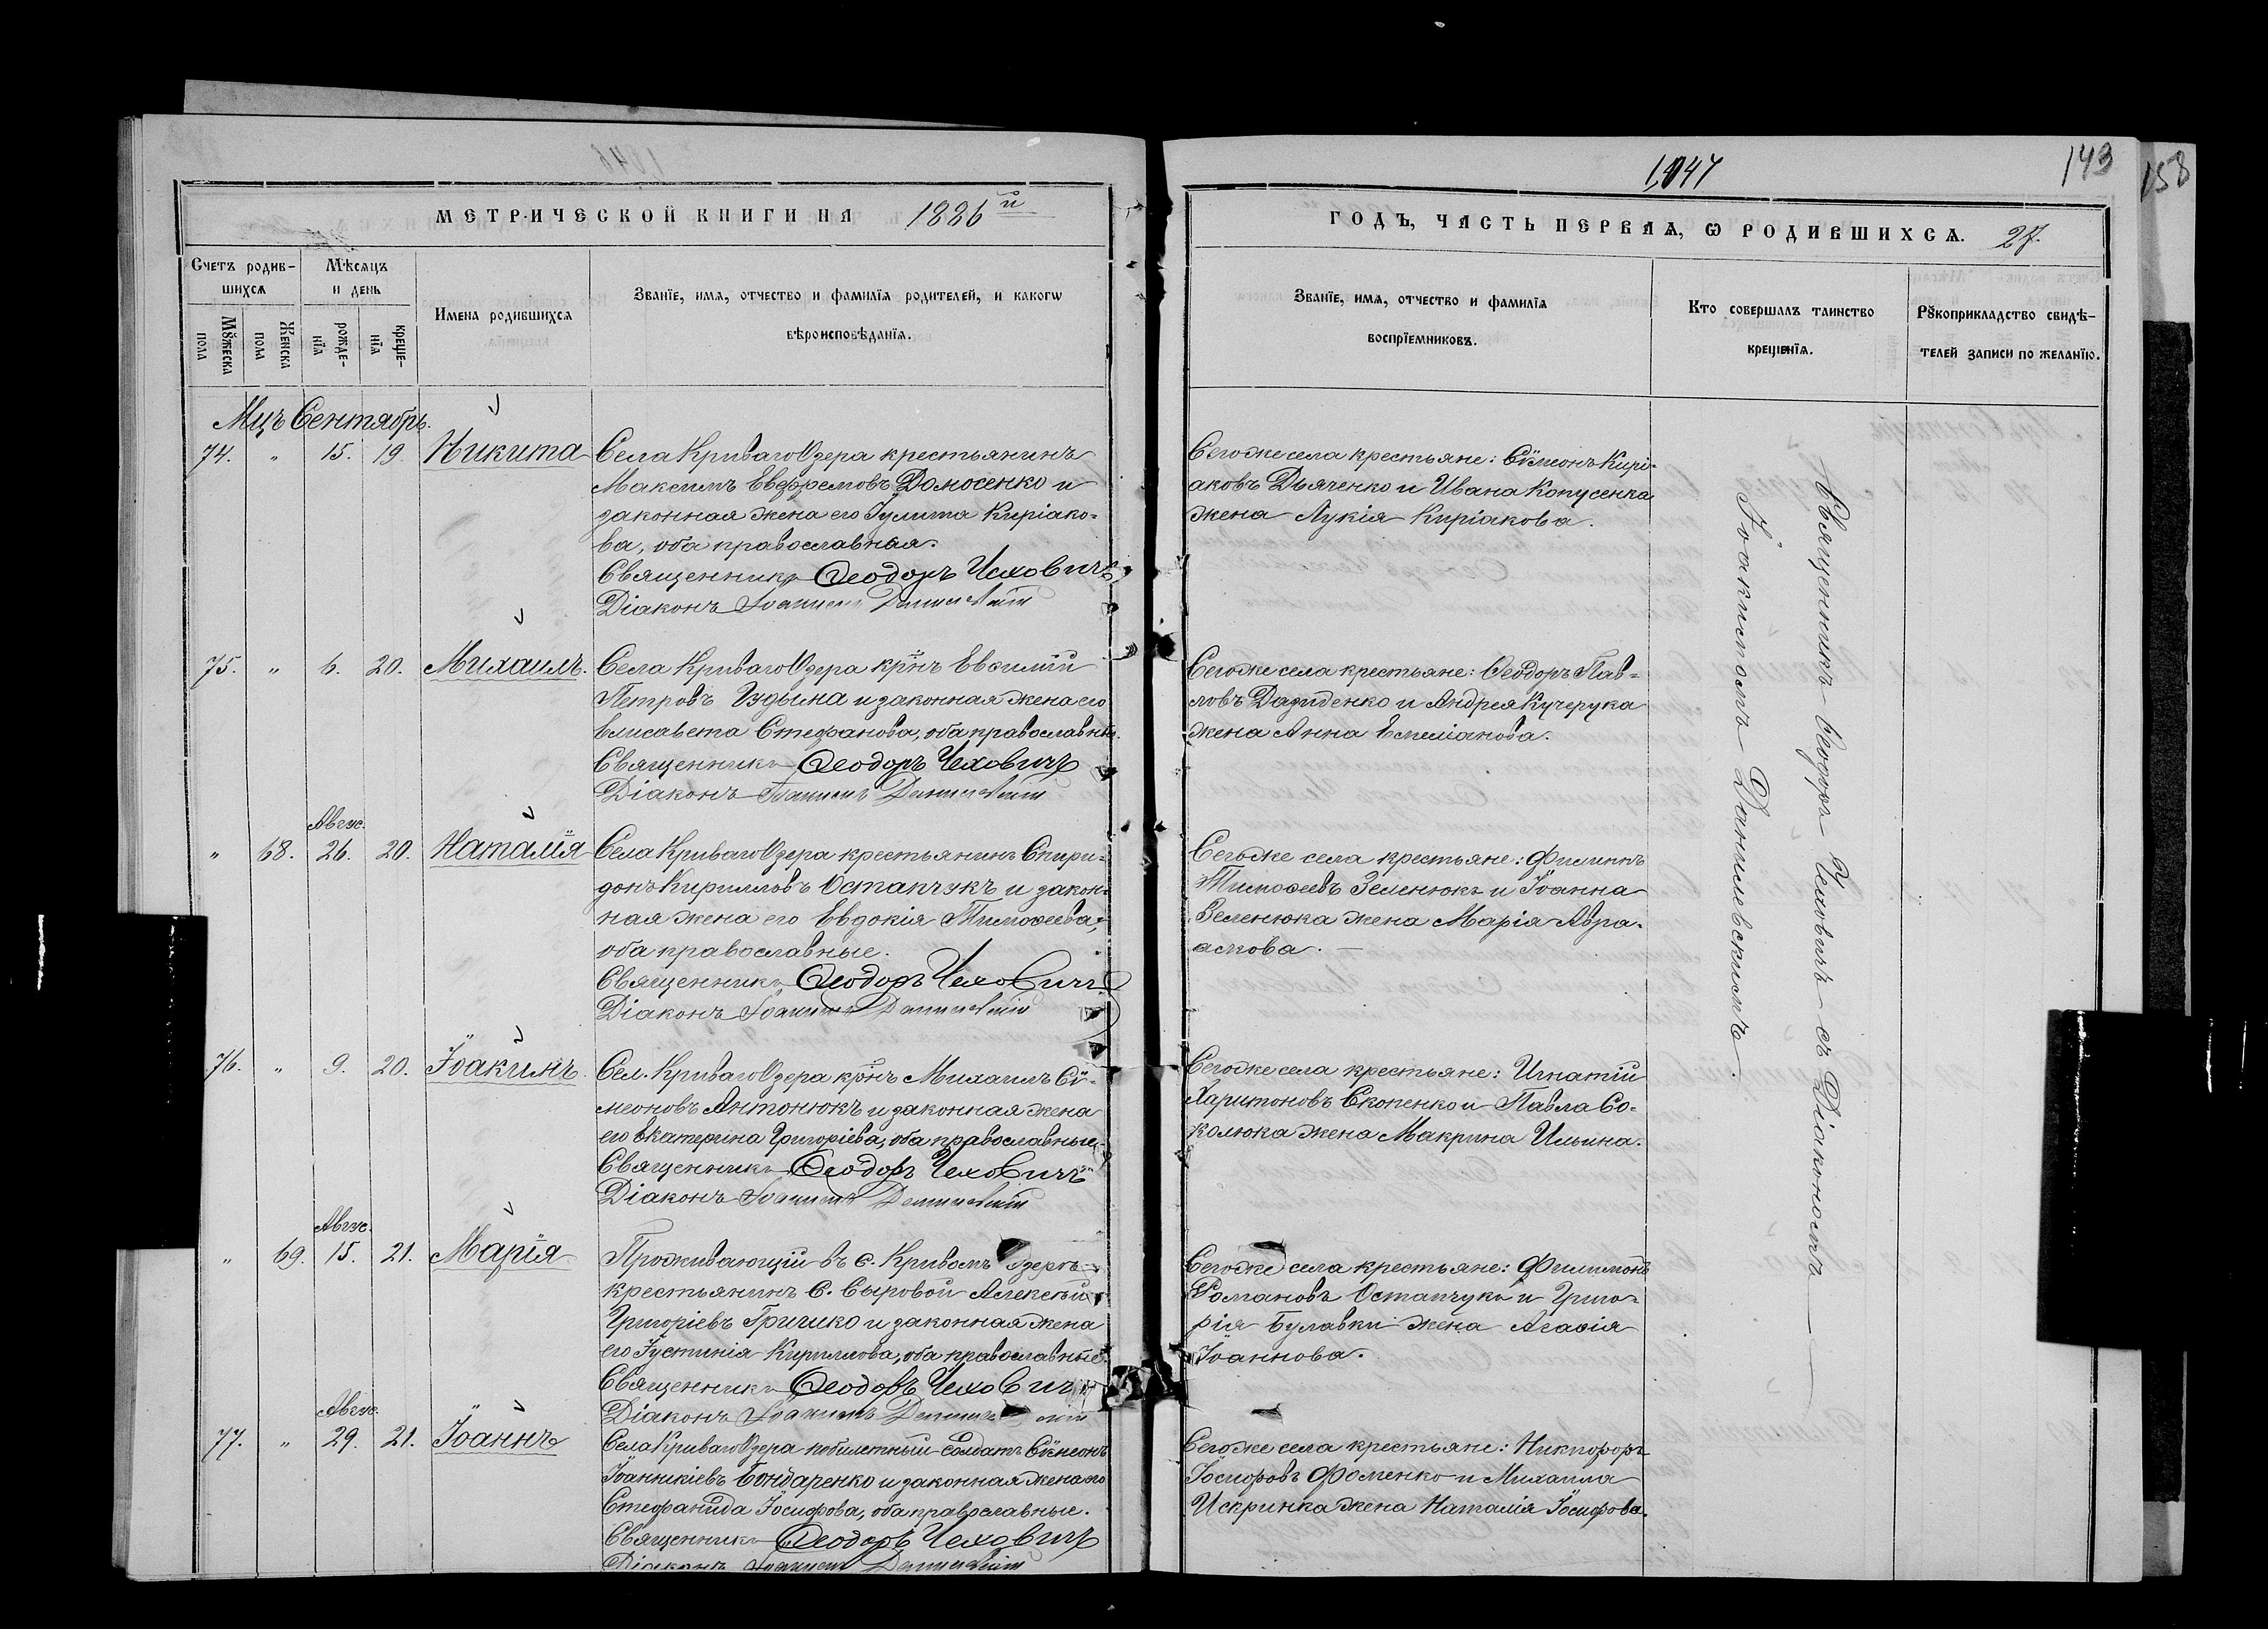 1,047
143
158
МЕТРИЧЕСКОЙ КНИГИ НА 1886й
Счетъ родив-
шихся
Мѣсяцъ
и день
Мꙋжеска
пола
Женска
пола
рожде-
нїя
креще-
нїя
Имена родившихся
Званїе, имя, отчество и фамилїя родителей, и какогѡ
вѣроисповѣданїя.
Мцъ Сентябрь.
74. " 15. 19. Никита
Села Криваго Озера крестьянинъ
Максимъ Евфремовъ Домосенко и
законная жена его Іулита Киріако-
ва, оба православная.
Священникъ Ѳеодоръ Чеховичъ
Діаконъ Іоакимъ
75. " 6. 20. Михаилъ.
Села Криваго Озера кр̃нъ Евсилій
Петровъ Гздына и законная жена его
Елисавета Стефанова, оба православные.
Священникъ Ѳеодоръ Чеховичъ
Діаконъ Іоакимъ
Авгус.
" 68. 26. 20. Наталія
Села Криваго Озера крестьянинъ Спири-
донъ Кирилловъ Остапчукъ и закон-
ная жена его Евдокія Тимоѳеева,
оба православные.
Священникъ Ѳеодоръ Чеховичъ
Діаконъ Іоакимъ
76. " 9. 20. Іоакимъ.
Сел. Криваго Озера кр̃нъ Михаилъ Сѵ-
меоновъ Антонюкъ и законная жена
его Екатерина Григоріева, оба православные.
Священникъ Ѳеодоръ Чеховичъ
Діаконъ Іоакимъ
Авгус.
" 69. 15. 21. Марія
Проживающій въ с. Кривомъ Озерѣ
крестьянинъ с. Сыровой Алексѣй
Григоріевъ Гричико и законная жена
его Іустинія Кириллова, оба православные.
Священникъ Ѳеодоръ Чеховичъ
Діаконъ Іоакимъ
Авгус.
77. " 29. 21. Іоаннъ
Села Криваго Озера побилетный солдатъ Сѵмеонъ
Іоанникіевъ Бондаренко и законная жена его
Стефанида Іосифова, оба православные.
Священникъ Ѳеодоръ Чеховичъ
Діаконъ Іоакимъ
ГОДЪ, ЧАСТЬ ПЕРВАЯ, Ѡ РОДИВШИХСЯ. 27.
Званїе, имя, отчество и фамилїя
воспрїемниковъ.
Кто совершалъ таинство
крещенїя.
Рꙋкоприкладство свидѣ-
телей записи по желанїю.
Сегоже села крестьяне: Сѵмеонъ Кирі-
аковъ Дьяченко и Ивана Копусенка
жена Лукія Киріакова.
Сегоже села крестьяне: Ѳеодоръ Пав-
ловъ Давиденко и Андрея Кучерука
жена Анна Емеліанова.
Сегоже села крестьяне: Филиппъ
Тимоѳеевъ Зеленюкъ и Іоанна
Зеленюка жена Марія Авра-
амова.
Сегоже села крестьяне: Игнатій
Харитоновъ Скопенко и Павла Со-
колюка жена Макрина Ильина.
Сегоже села крестьяне: Филимонъ
Романовъ Остапчукъ и Григо-
рія Булавки жена Агаѳія
Іоаннова.
Сегоже села крестьяне: Никифоръ
Іосифовъ Фоменко и Михаила
Искринка жена Наталія Іосифова.
Священникъ Ѳеодоръ Чеховичъ съ Діакономъ
Іоакимомъ Данилевскимъ.